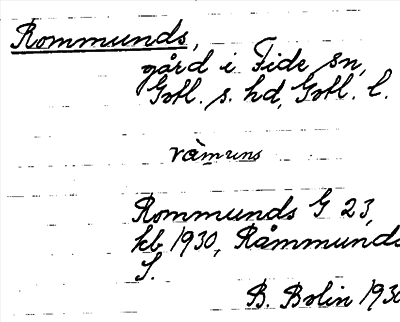 Rommunds,
gård i Fide sn,
Gotl. s. hd, Gotl. l.
ràmuns
Rommunds G 23,
kb 1930, Råmmunds
S.
B. Bolin 1930